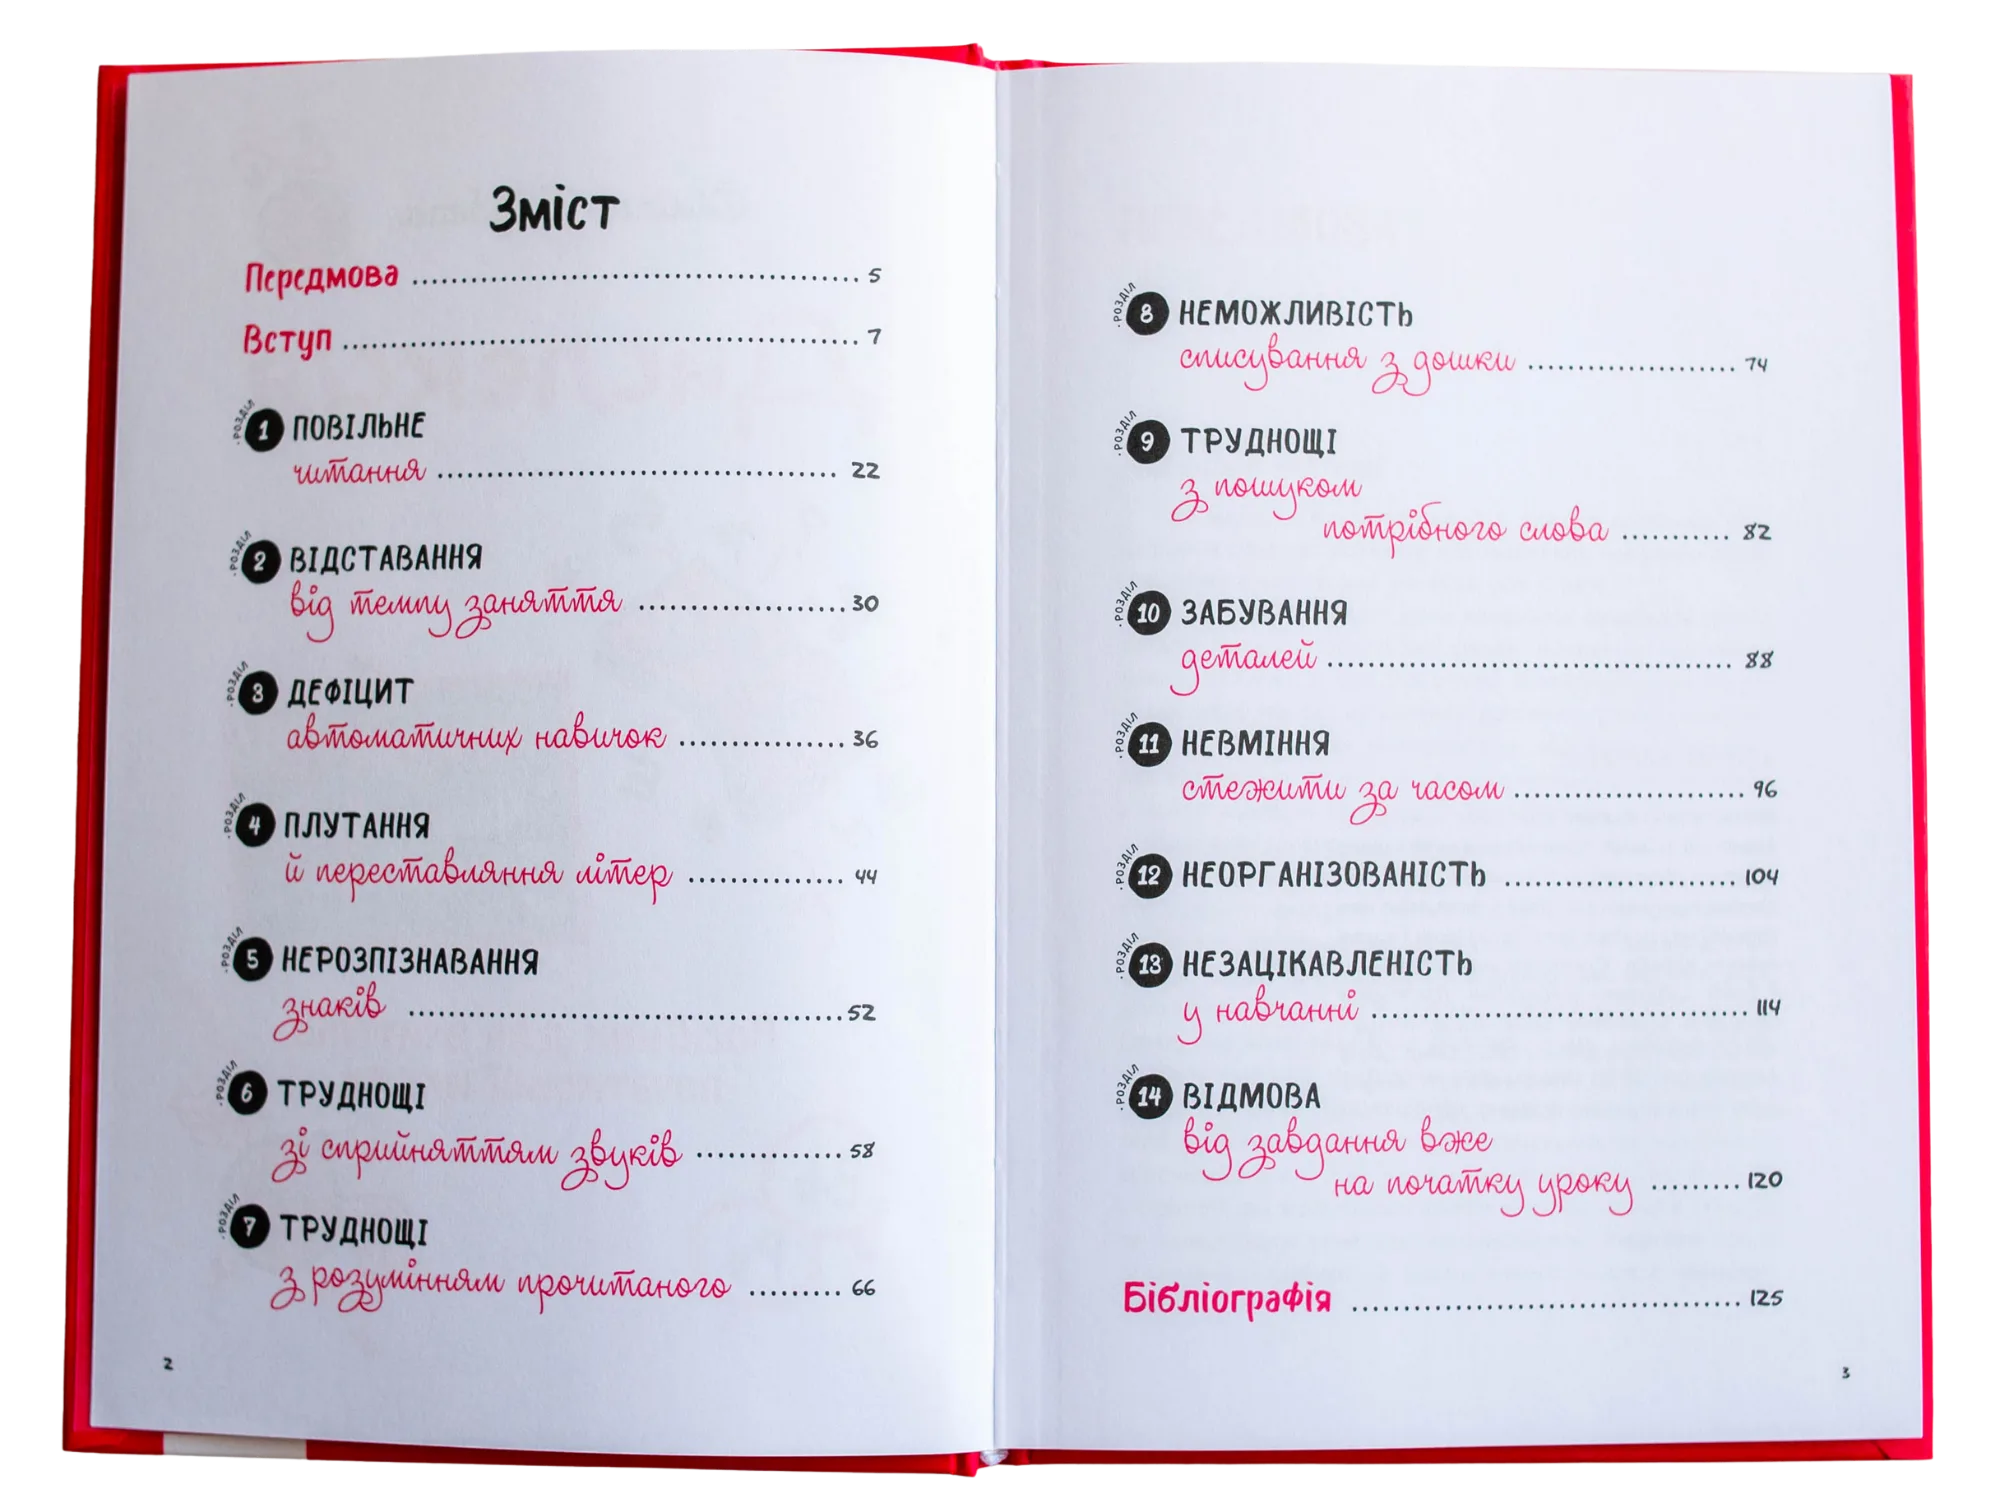 Зміст
Передмова 5
Вступ 7
РОЗДІЛ 1 ПОВІЛЬНЕ
читання 22
РОЗДІЛ 2 ВІДСТАВАННЯ
від темпу заняття 30
РОЗДІЛ 3 ДЕФІЦИТ
автоматичних навичок 36
РОЗДІЛ 4 ПЛУТАННЯ
й переставляння літер 44
РОЗДІЛ 5 НЕРОЗПІЗНАВАННЯ
знаків 52
РОЗДІЛ 6 ТРУДНОЩІ
зі сприйняттям звуків 58
РОЗДІЛ 7 ТРУДНОЩІ
з розумінням прочитаного 66
2
РОЗДІЛ 8 НЕМОЖЛИВІСТЬ
списування з дошки 74
РОЗДІЛ 9 ТРУДНОЩІ
з пошуком
потрібного слова 82
РОЗДІЛ 10 ЗАБУВАННЯ
деталей 88
РОЗДІЛ 11 НЕВМІННЯ
стежити за часом 96
РОЗДІЛ 12 НЕОРГАНІЗОВАНІСТЬ 104
РОЗДІЛ 13 НЕЗАЦІКАВЛЕНІСТЬ
у навчанні 114
РОЗДІЛ 14 ВІДМОВА
від завдання вже
на початку уроку 120
Бібліографія 125
3